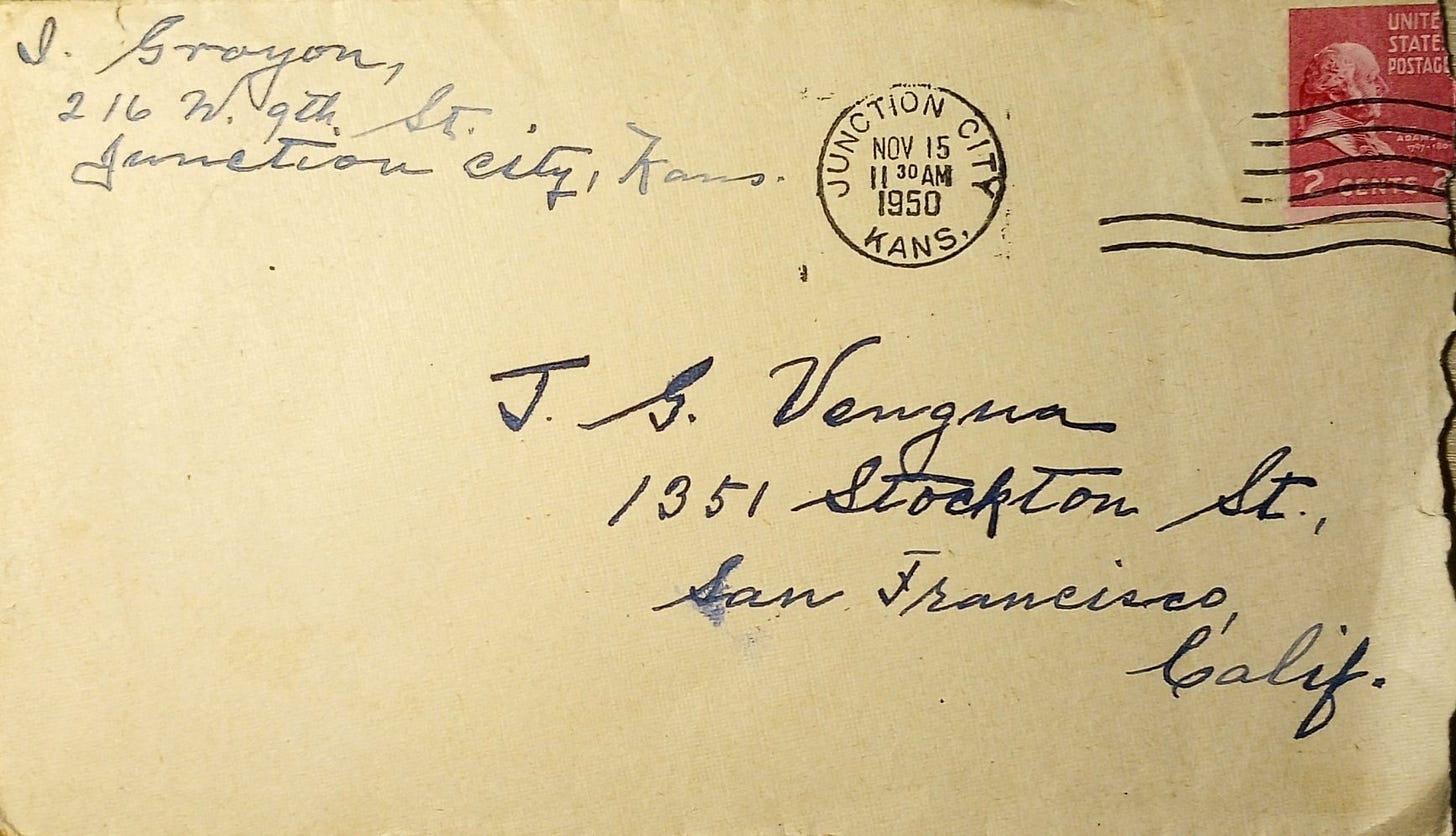 I. Grayon,
216 W. 9th St.
Junction city, Kans.
JUNCTION CITY
NOV 15
11 30 AM
1950
KANS.
UNITE
STATE
POSTAG
ADAMS
2 CENTS 2
J. G. Vengua
1351 Stockton St.,
San Francisco,
Calif.